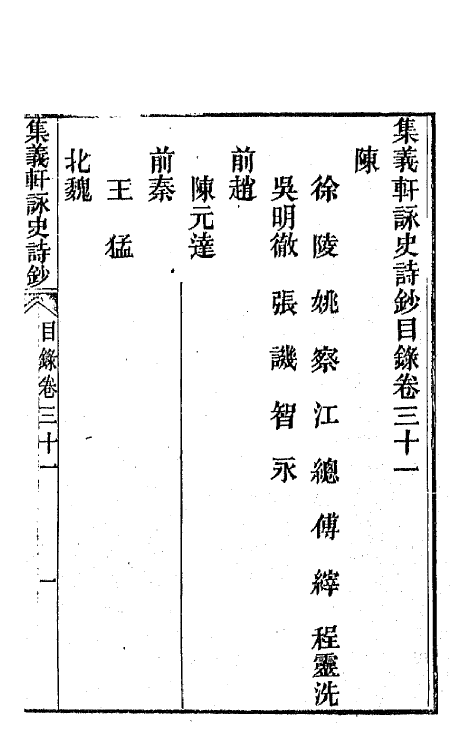 集義軒詠史詩鈔目錄卷三十一
陳
徐陵 姚察 江總 傅縡 程靈洗
吳明徹 張譏 智永
前趙
陳元達
前秦
王猛
北魏
集義軒詠史詩鈔 目錄卷三十一 一